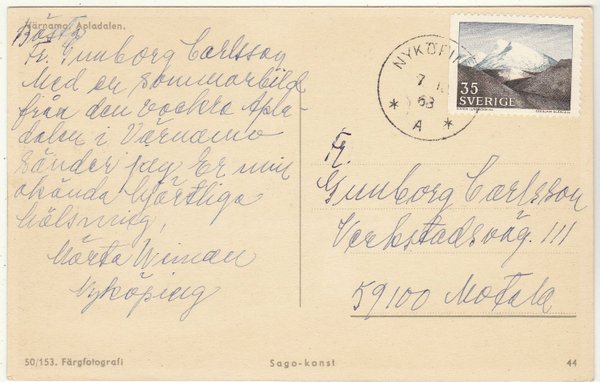 Värnamo. Apladalen.
Bästa
Fr. Gunborg Carlsson
Med en sommarbild
från den vackra Apla-
dalen i Värnamo
sänder jag Er min
okända hjärtliga
hälsning,
Märta Wiman
Nyköping
50/153. Färgfotografi
Sago-konst
44
NYKÖPING
7
68
* A *
35
SVERIGE
Fr.
Gunborg Carlsson
Verkstadsväg. 111
59100 Motala